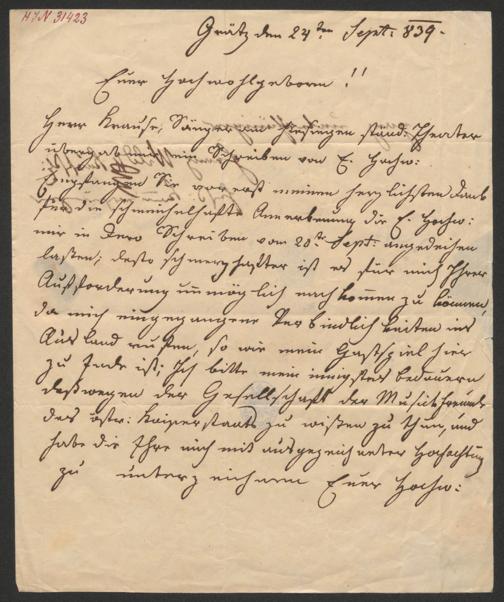 HIN 31423
Grätz den 24ten Sept: 839.
Euer Hochwohlgeborn!!
Herr Krause, Sänger am hiesigen ständ: Theater
übergab mir ein Schreiben von E. Hochw:
Empfangen Sie vorerst meinen herzlichsten Dank
für die schmeichelhafte Anerkennung die E. Hochw:
mir in Dero Schreiben vom 20ten Sept: angedeihen
lassen, desto schmerzhafter ist es für mich Ihrer
Aufforderung unmöglich nachkommen zu können,
da mich eingegangene Verbindlichkeiten ins
Ausland rufen, so wie mein Gastspiel hier
zu Ende ist; Ich bitte mein innigstes bedauern
deßwegen der Gesellschaft der Musikfreunde
des östr: Kaiserstaats zu wissen zu thun, und
habe die Ehre mich mit ausgezeichneter Hochachtung
zu unterzeichnen Euer Hochw: